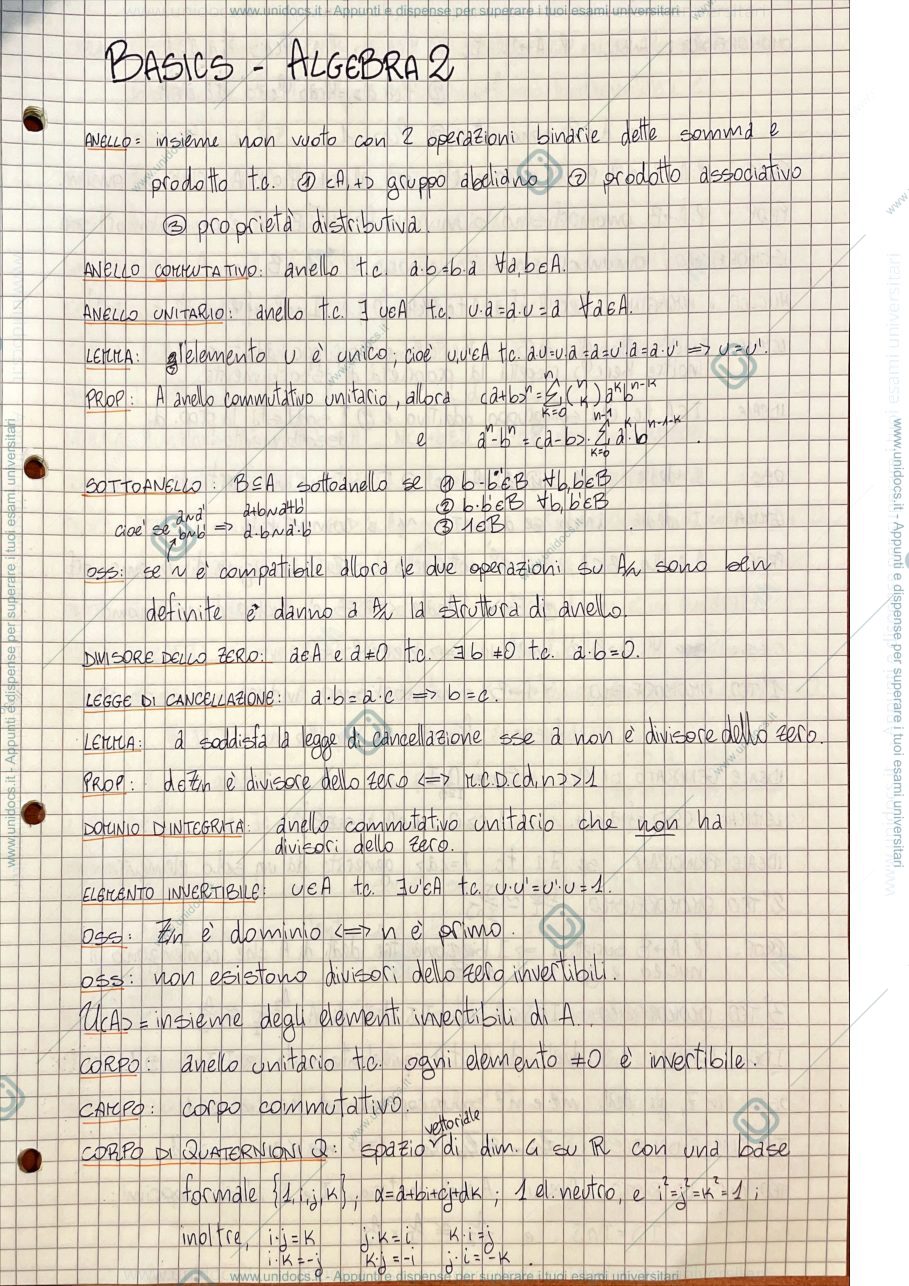 www.unidocs.it - Appunti e dispense per superare i tuoi esami universitari
BASICS - ALGEBRA 2
ANELLO = insieme non vuoto con 2 operazioni binarie dette somma e
prodotto t.c. ① (A,+) gruppo abeliano ② prodotto associativo
③ proprietà distributiva.
ANELLO COMMUTATIVO: anello t.c. a·b=b·a ∀a,b∈A.
ANELLO UNITARIO: anello t.c. ∃ u∈A t.c. u·a=a·u=a ∀a∈A.
LEMMA: l'elemento u è unico, cioè u,u'∈A t.c. a·u=u·a=a=u'·a=a·u' => u=u'.
PROP: A anello commutativo unitario, allora (a+b)^n = Σ_{k=0}^{n} (n k) a^k b^{n-k}
e a^n-b^n = (a-b)·Σ_{k=0}^{n-1} a^k·b^{n-1-k}.
SOTTOANELLO: B⊆A sottoanello se ① b-b'∈B ∀b,b'∈B
② b·b'∈B ∀b,b'∈B
③ 1∈B.
cioè se a~a' b~b' => a+b~a'+b' a·b~a'·b'
OSS: se ~ è compatibile allora le due operazioni su A/~ sono ben
definite e danno a A/~ la struttura di anello.
DIVISORE DELLO ZERO: a∈A e a≠0 t.c. ∃b≠0 t.c. a·b=0.
LEGGE DI CANCELLAZIONE: a·b=a·c => b=c.
LEMMA: a soddisfa la legge di cancellazione sse a non è divisore dello zero.
PROP: d∈ℤn è divisore dello zero <=> M.C.D.(d,n)>1
DOMINIO D'INTEGRITÀ: anello commutativo unitario che non ha
divisori dello zero.
ELEMENTO INVERTIBILE: u∈A t.c. ∃u'∈A t.c. u·u'=u'·u=1.
OSS: ℤn è dominio <=> n è primo.
OSS: non esistono divisori dello zero invertibili.
U(A) = insieme degli elementi invertibili di A.
CORPO: anello unitario t.c. ogni elemento ≠0 è invertibile.
CAMPO: corpo commutativo.
CORPO DI QUATERNIONI Q: spazio vettoriale di dim. 4 su ℝ con una base
formale {1,i,j,k}, α=a+bi+cj+dk, 1 el. neutro, e i²=j²=k²=1;
inoltre, i·j=k j·k=i k·i=j
i·k=-j k·j=-i j·i=-k.
www.unidocs.it - Appunti e dispense per superare i tuoi esami universitari
www.unidocs.it - Appunti e dispense per superare i tuoi esami universitari
www.unidocs.it - Appunti e dispense per superare i tuoi esami universitari